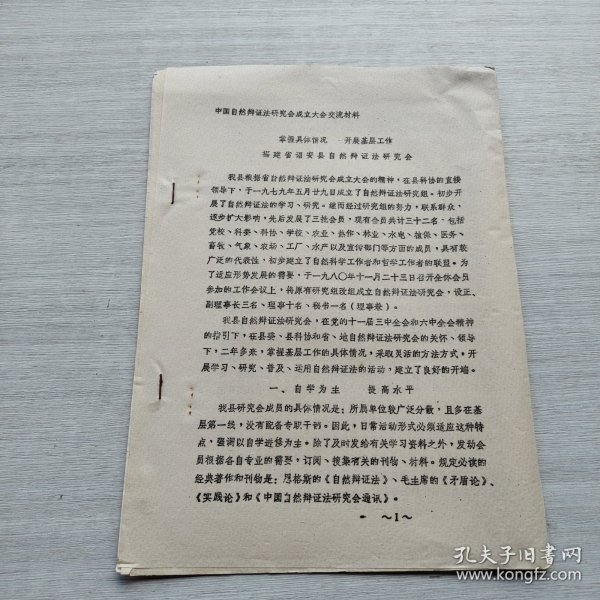 中国自然辩证法研究会成立大会交流材料
掌握具体情况 开展基层工作
福建省诏安县自然辩证法研究会
我县根据省自然辩证法研究会成立大会的精神，在县科协的直接
领导下，于一九七九年五月廿九日成立了自然辩证法研究组。初步开
展了自然辩证法的学习、研究。继而经过研究组的努力，联系群众，
逐步扩大影响，先后发展了三批会员，现有会员共计三十二名，包括
党校、科委、科协、学校、农业、热作、林业、水电、植保、医务、
畜牧、气象、农场、工厂、水产以及宣传部门等方面的成员，具有较
广泛的代表性，初步建立了自然科学工作者和哲学工作者的联盟。为
了适应形势发展的需要，于一九八〇年十一月二十三日召开全体会员
参加的工作会议上，将原有研究组改组成立自然辩证法研究会，设正、
副理事长三名、理事十名、秘书一名（理事兼）。
我县自然辩证法研究会，在党的十一届三中全会和六中全会精神
的指引下，在县委、县科协和省、地自然辩证法研究会的关怀、领导
下，二年多来，掌握基层工作的具体情况，采取灵活的方法方式，开
展学习、研究、普及、运用自然辩证法的活动，建立了良好的开端。
一、自学为主 提高水平
我县研究会成员的具体情况是：所属单位较广泛分散，且多在基
层第一线，没有配备专职干部。因此，日常活动形式必须适应这种特
点，强调以自学进修为主。除了及时发给有关学习资料之外，发动会
员根据各自专业的需要，订阅、搜集有关的刊物、材料。规定必读的
经典著作和刊物是：恩格斯的《自然辩证法》、毛主席的《矛盾论》、
《实践论》和《中国自然辩证法研究会通讯》。
～1～
孔夫子旧书网
www.kongfz.com